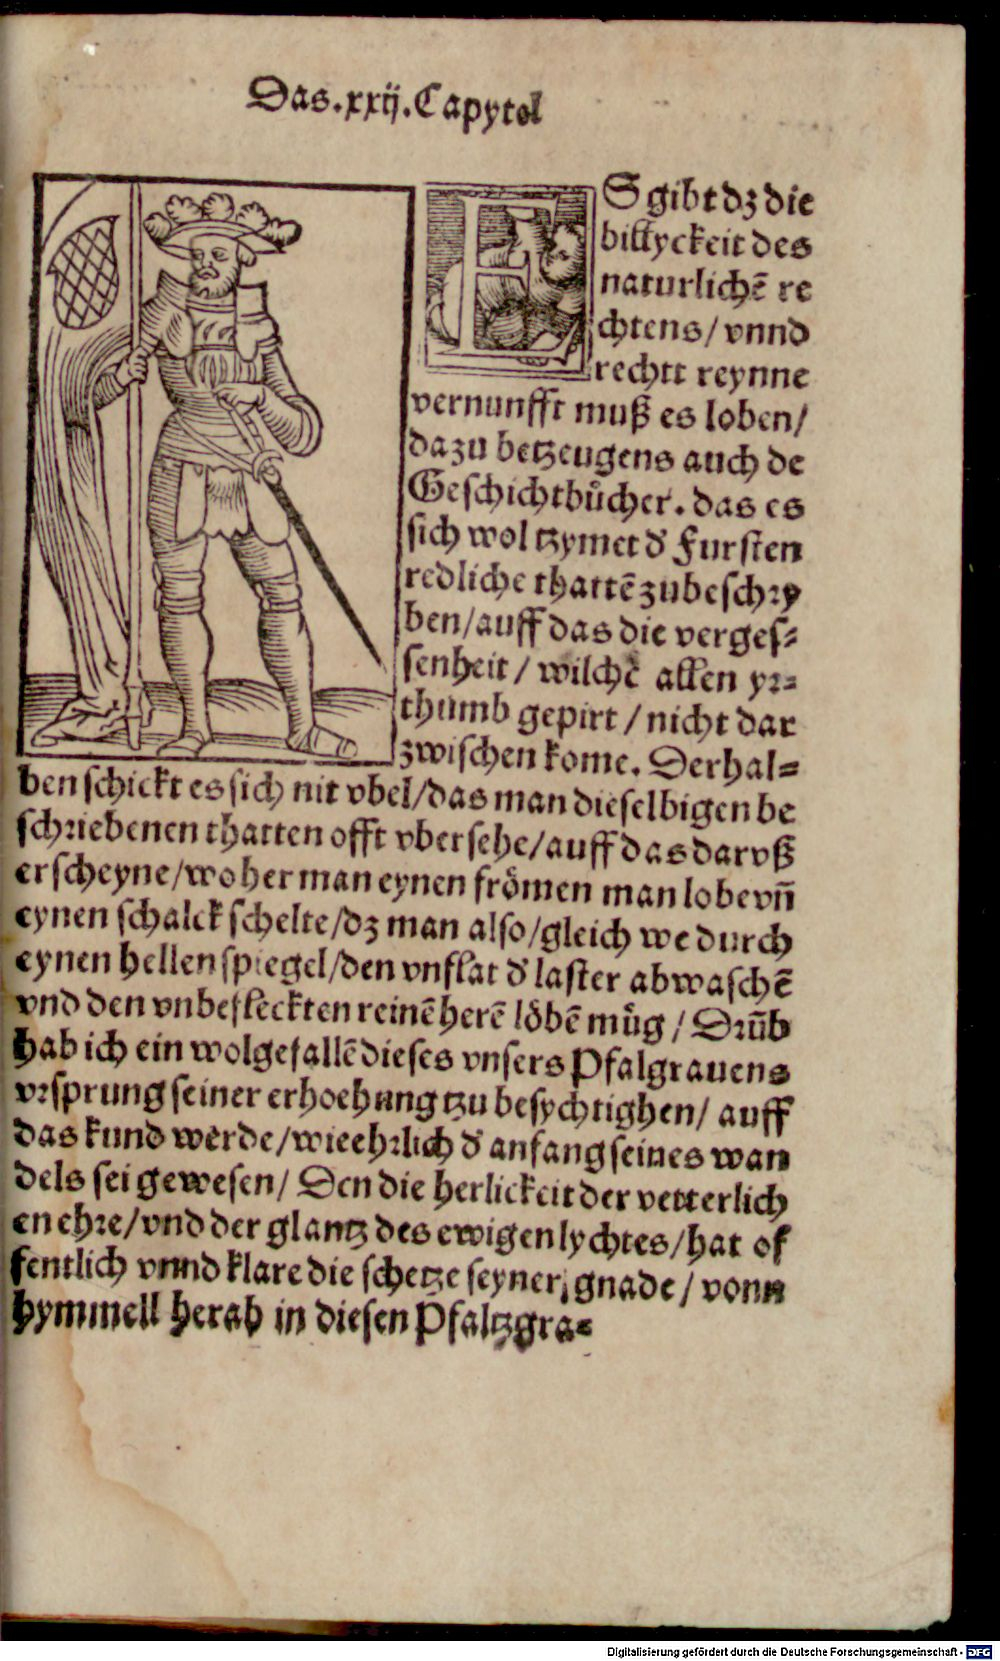 Das.xxij.Capytel
ES gibt dz die
billyckeit des
naturlichẽ re
chtens/ vnnd
rechtt reynne
vernunfft muß es loben/
dazu betzeugens auch de
Geschichtbuͤcher. das es
sich wol tzymet d' Fursten
redliche thattẽ zubeschry
ben/auff das die verges⸗
senheit/ wilchẽ allen yr⸗
thumb gepirt/nicht dar
zwischen kome. Derhal⸗
ben schickt es sich nit vbel/das man dieselbigen be
schriebenen thatten offt vbersehe/auff das darvß
erscheyne/woher man eynen froͤmen man lobe vñ
eynen schalck schelte/dz man also/gleich we durch
eynen hellen spiegel/den vnflat d' laster abwaschẽ
vnd den vnbefleckten reinẽ herẽ loͤbẽ muͤg/Drũb
hab ich ein wolgefallẽ dieses vnsers Pfalgrauens
vrsprung seiner erhoehung tzu besychtighen/ auff
das kund werde/wie ehrlich d' anfang seines wan
dels sei gewesen/ Den die herlickeit der vetterlich
en ehre/vnd der glantz des ewigen lychtes/hat of
fentlich vnnd klare die schetze seyner, gnade/ vonn
hymmell herab in diesen Pfaltzgra⸗
Digitalisierung gefördert durch die Deutsche Forschungsgemeinschaft - DFG